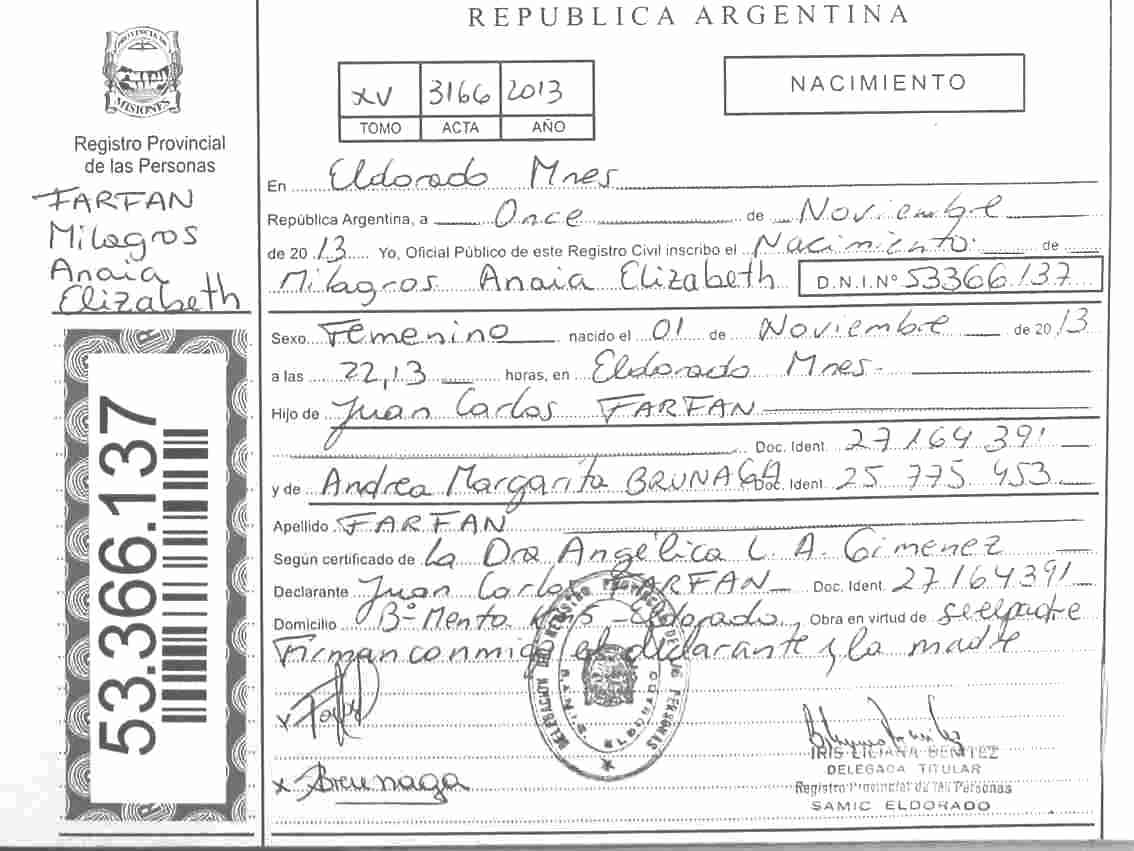 REPUBLICA ARGENTINA
PROVINCIA DE
MISIONES
Registro Provincial
de las Personas
FARFAN
Milagros
Anaia
Elizabeth
53.366.137
XV 3166 2013
TOMO ACTA AÑO
NACIMIENTO
En Eldorado Mnes
República Argentina, a Once de Noviembre
de 2013 Yo, Oficial Público de este Registro Civil inscribo el Nacimiento de
Milagros Anaia Elizabeth D.N.I.Nº 53366.137
Sexo Femenino nacido el 01 de Noviembre de 2013
a las 22,13 horas, en Eldorado Mnes.
Hijo de Juan Carlos FARFAN
Doc. Ident. 27164391
y de Andrea Margarita BRUNAGA Doc. Ident. 25 775 453
Apellido FARFAN
Según certificado de la Dra Angélica L. A. Gimenez
Declarante Juan Carlos FARFAN Doc. Ident. 27164391
Domicilio Bº Mento - Eldorado Obra en virtud de ser el padre
Firman conmigo el declarante y la madre
x
x Brunaga
DELEGACION DEL REGISTRO PROVINCIAL DE LAS PERSONAS
ELDORADO
IRIS LILIANA BENITEZ
DELEGADA TITULAR
Registro Provincial de las Personas
SAMIC ELDORADO